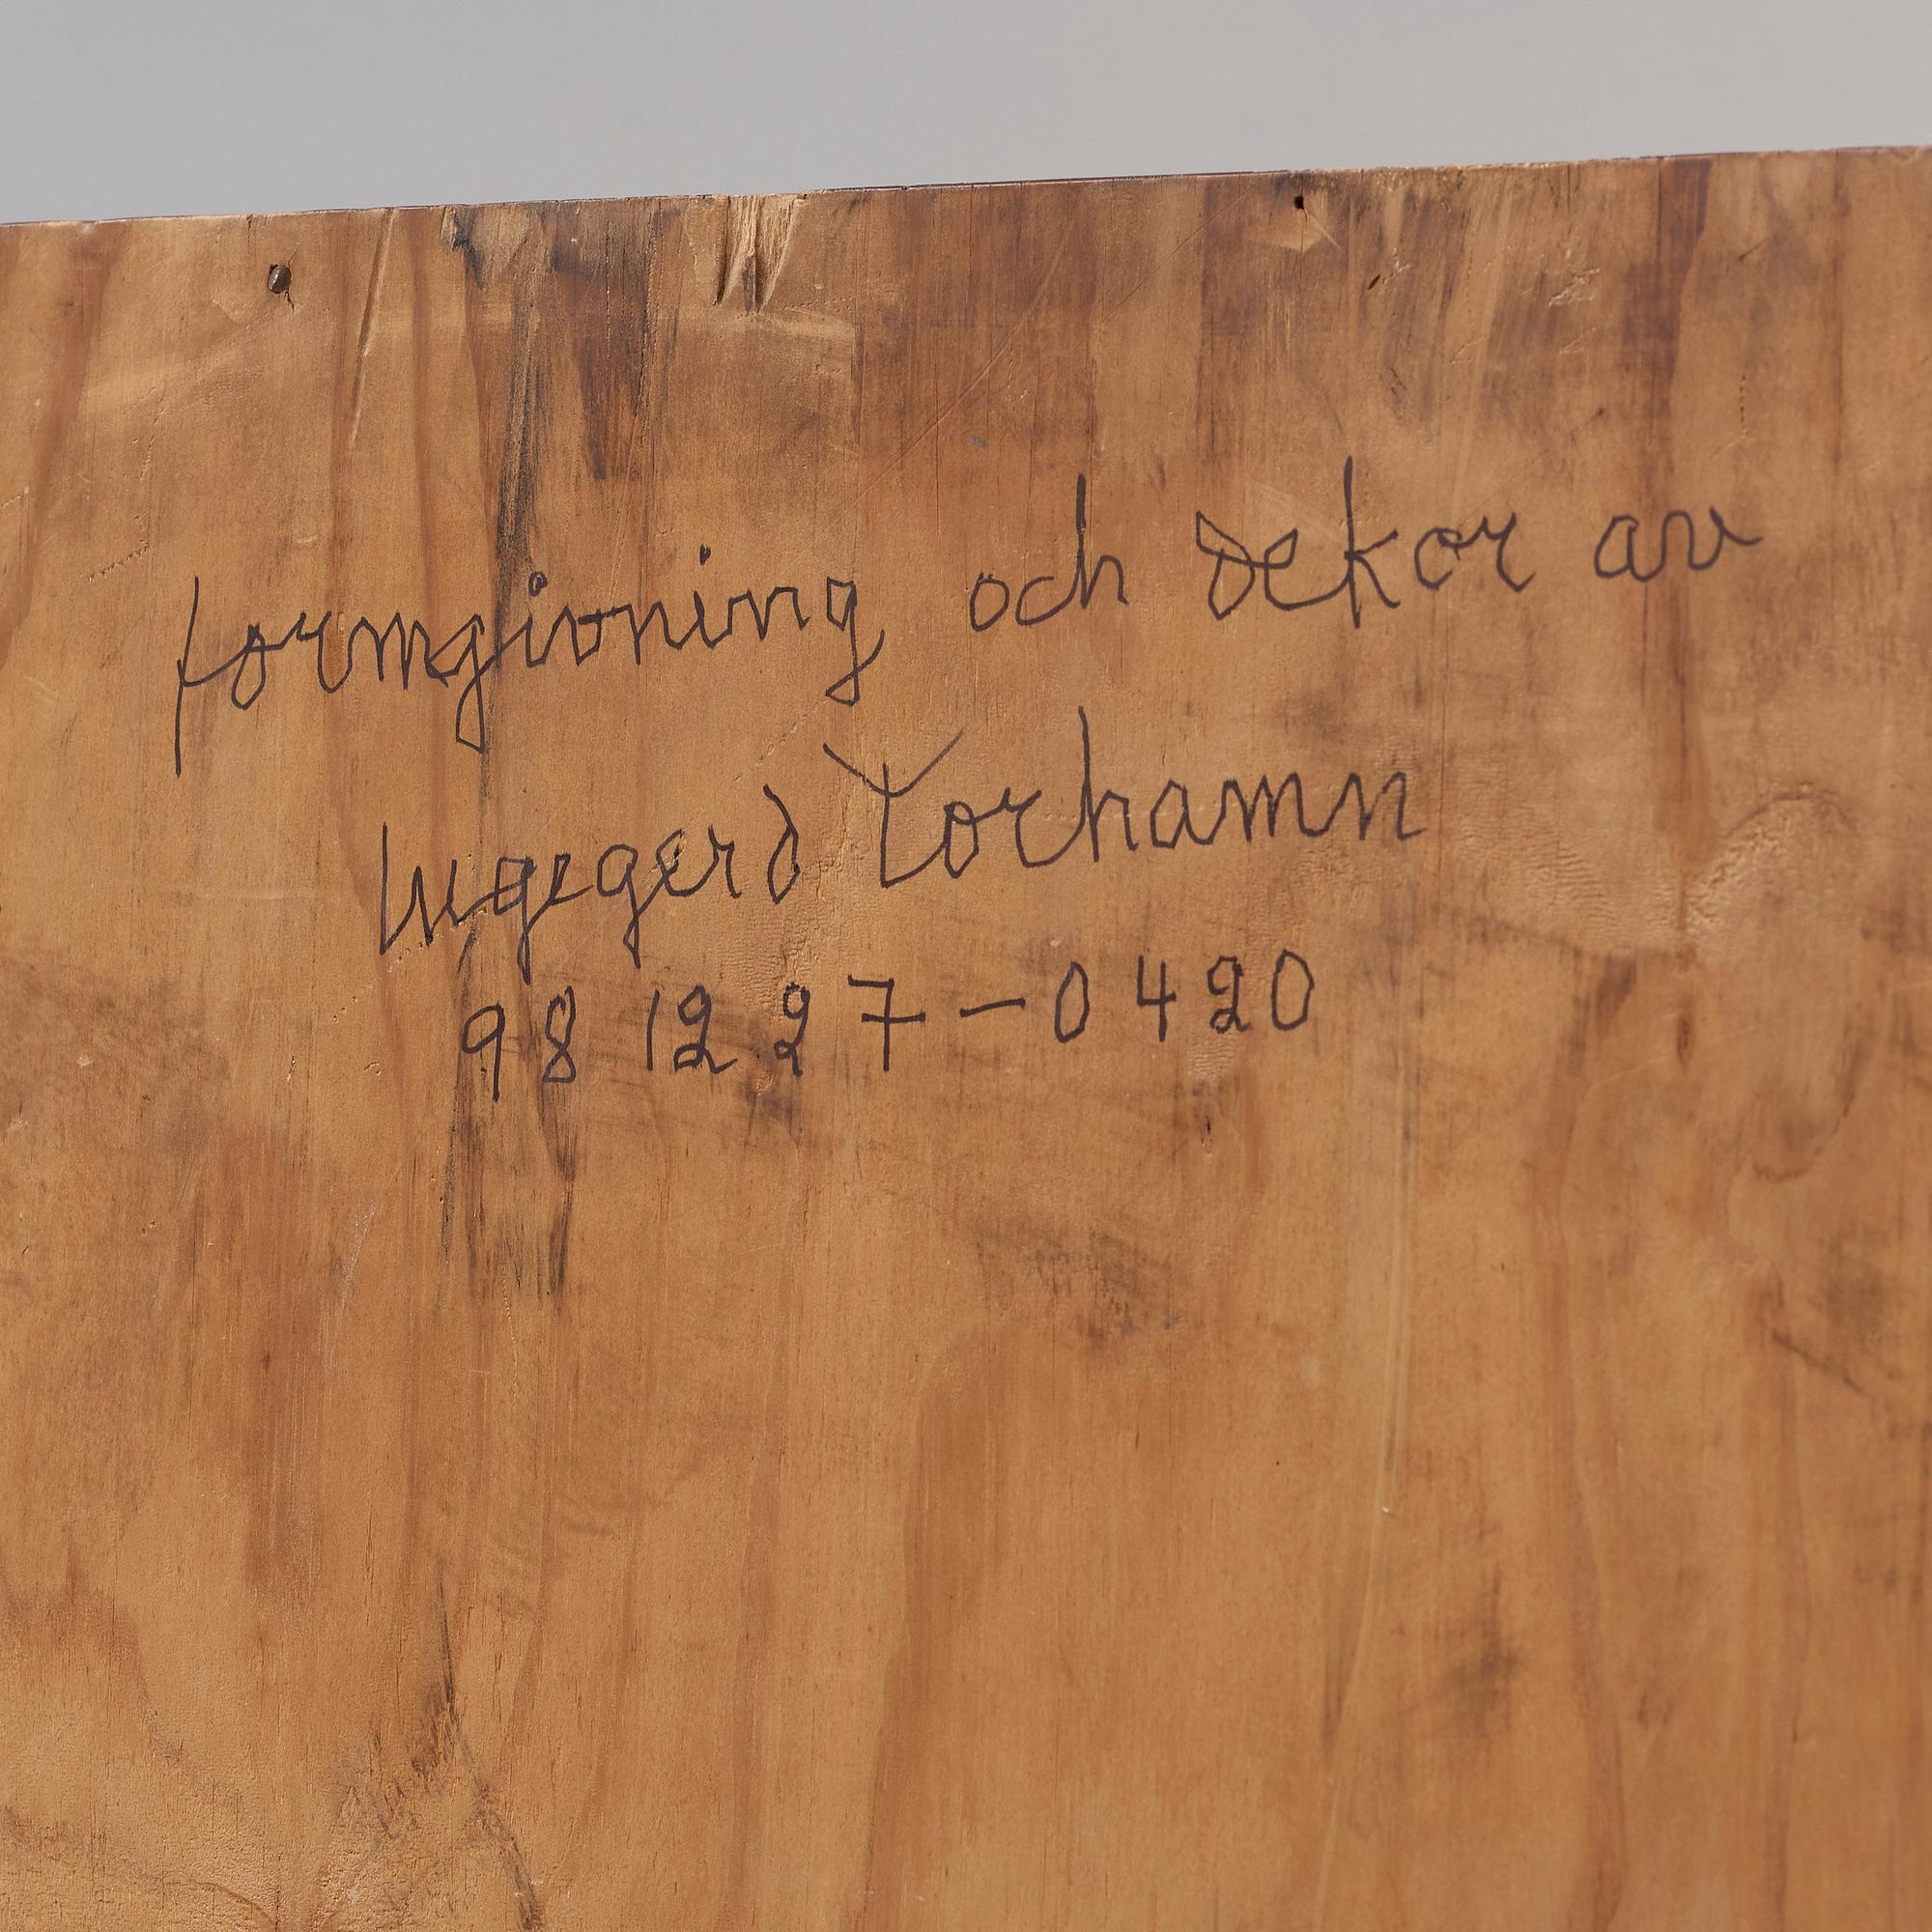 formgivning och dekor av
Ingegerd Torhamn
98 12 27-0420